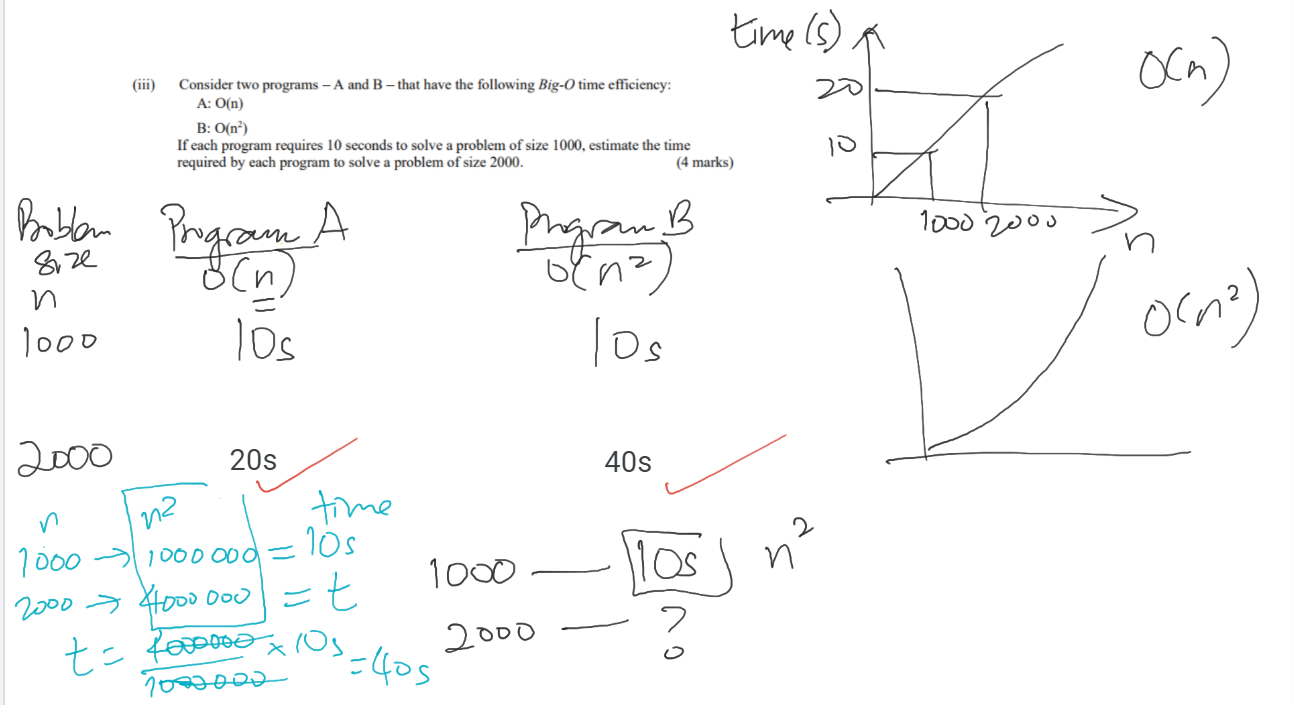 (iii) Consider two programs – A and B – that have the following Big-O time efficiency:
A: O(n)
B: O(n²)
If each program requires 10 seconds to solve a problem of size 1000, estimate the time
required by each program to solve a problem of size 2000. (4 marks)
time (s)
20
10
1000 2000
n
O(n)
O(n²)
Problem size
n
1000
2000
Program A
O(n)
10s
20s
Program B
O(n²)
10s
40s
n n² time
1000 → 1000 000 = 10s
2000 → 4000 000 = t
t = 4000000 × 10s = 40s
1000000
1000 — 10s n²
2000 — ?